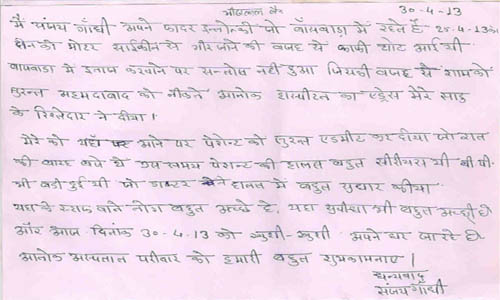 मोहनलाल जैन 30-4-13
मैं संजय गाँधी अपने फादर इन्लोकी जो बाँसवाडा में रहते हैं 25-4-13 को
दीन को मोटर साईकील से गीर जाने की वजह से काफी चोट आई थी
बांसवाडा में इलाज करवाने पर सन्तोष नहीं हुआ जिसकी वजह से शामको
तुरन्त अहमदाबाद को नीकले आलोक हास्पीटल का एड्रेस मेरे साडु
के रिश्तेदार ने दीया।
मेरे को यहाँ पर आने पर पेशेन्ट को तुरन्त एडमीट कर दीया जो रात
की बारह बजे थे उस समय पेशेन्ट की हालत बहुत सीरीयस थी बी.पी.
भी बडी हुई थी जो डाक्टर ने हालत में बहुत सुधार कीया
यहा के स्टाफ वाले लोग बहुत अच्छे है, यहा सुवीधा भी बहुत अच्छी है
और आज दिनांक 30-4-13 को खुशी-खुशी अपने घर जा रहे है
आलोक अस्पताल परीवार को हमारी बहुत शुभकामनाए।
धन्यवाद
संजय गाँधी